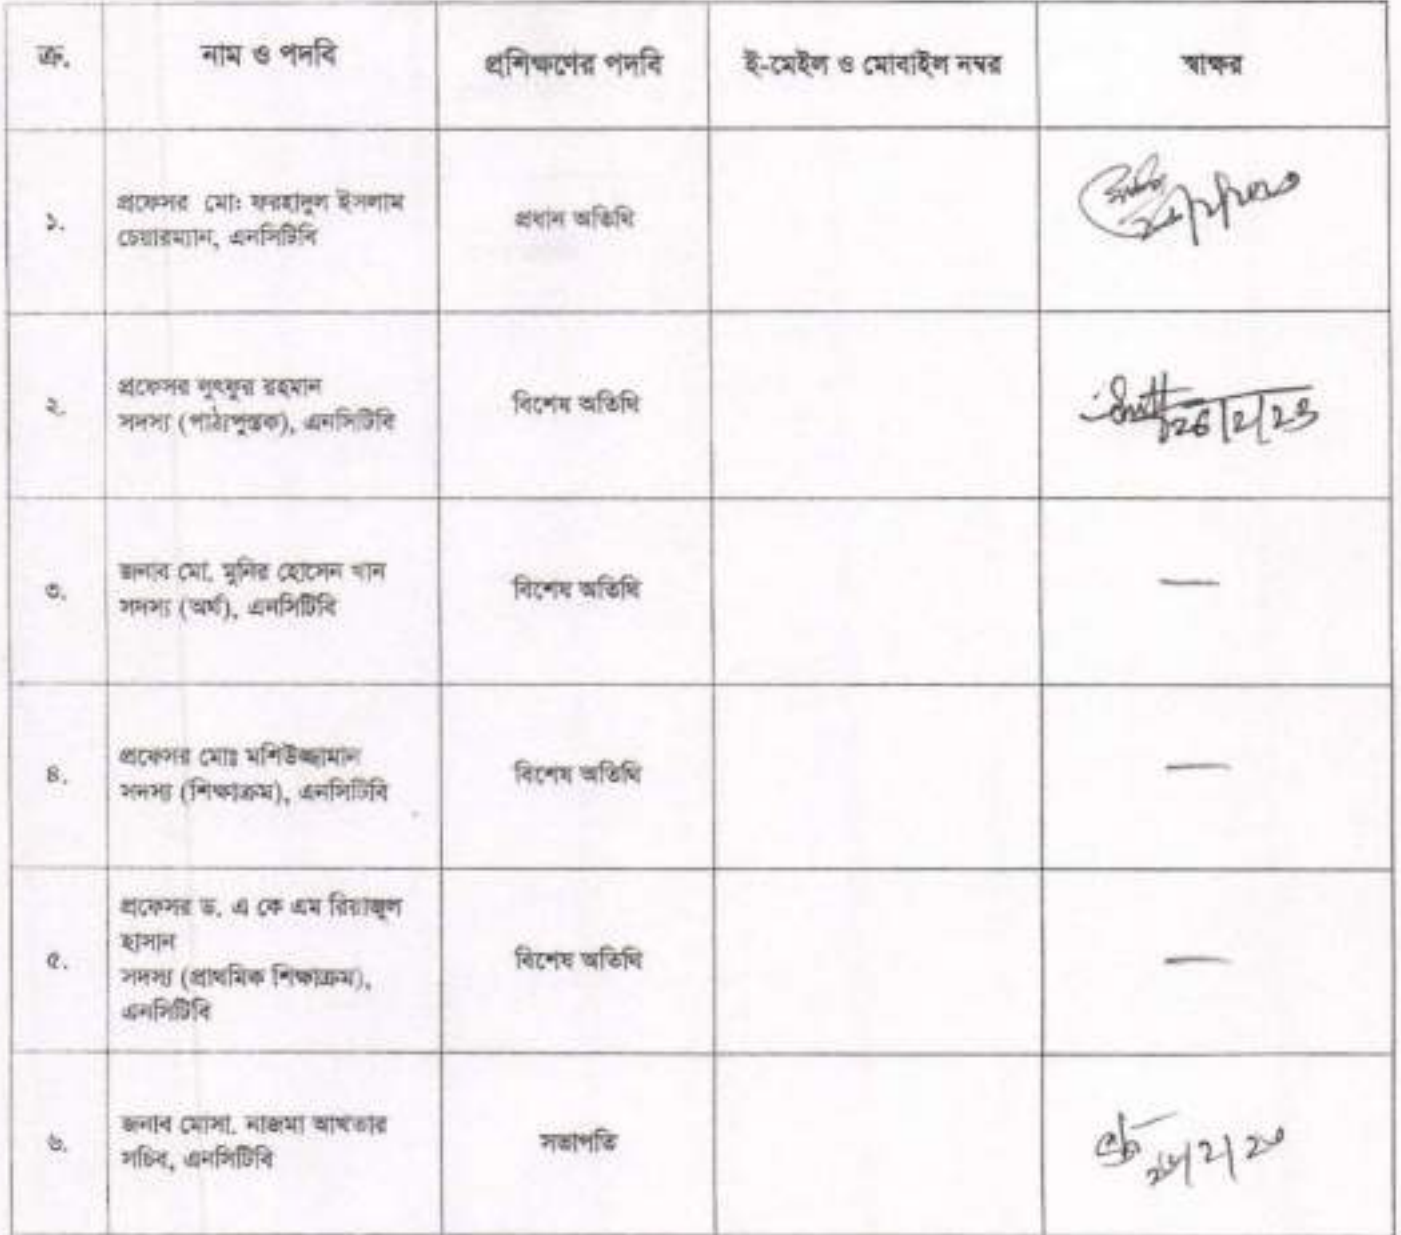 ক্র. নাম ও পদবি প্রশিক্ষণের পদবি ই-মেইল ও মোবাইল নম্বর স্বাক্ষর
১. প্রফেসর মো: ফরহাদুল ইসলাম
চেয়ারম্যান, এনসিটিবি
প্রধান অতিথি
২. প্রফেসর লুৎফুর রহমান
সদস্য (পাঠ্যপুস্তক), এনসিটিবি
বিশেষ অতিথি
26/2/23
৩. জনাব মো. মুনির হোসেন খান
সদস্য (অর্থ), এনসিটিবি
বিশেষ অতিথি
—
৪. প্রফেসর মোঃ মশিউজ্জামান
সদস্য (শিক্ষাক্রম), এনসিটিবি
বিশেষ অতিথি
—
৫. প্রফেসর ড. এ কে এম রিয়াজুল
হাসান
সদস্য (প্রাথমিক শিক্ষাক্রম),
এনসিটিবি
বিশেষ অতিথি
—
৬. জনাব মোসা. নাজমা আখতার
সচিব, এনসিটিবি
সভাপতি